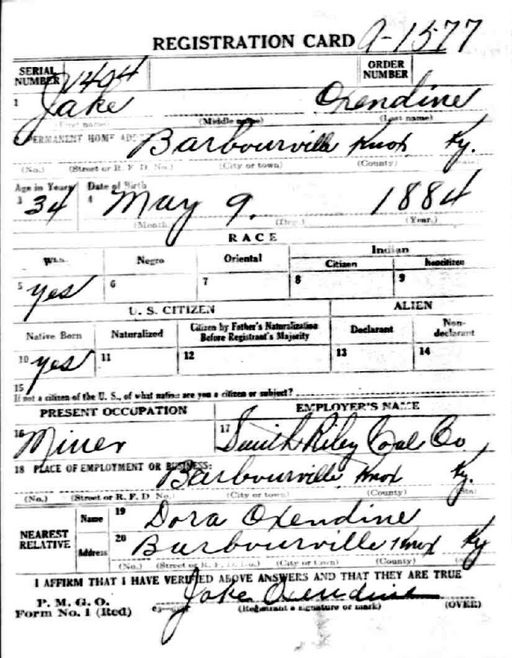 REGISTRATION CARD A-1577
SERIAL NUMBER 1404 ORDER NUMBER
1 Jake Oxendine
(Middle name) (Last name)
PERMANENT HOME ADD Barbourville Knox Ky.
(No.) (Street or R. F. D. No.) (City or town) (County)
Age in Years Date of Birth
3 34 4 May 9. 1884
(Month) (Day.) (Year.)
RACE
Negro Oriental Indian
Citizen Noncitizen
5 yes 6 7 8 9
U. S. CITIZEN ALIEN
Native Born Naturalized Citizen by Father's Naturalization Before Registrant's Majority Declarant Non-declarant
10 yes 11 12 13 14
15
If not a citizen of the U. S., of what nation are you a citizen or subject?
PRESENT OCCUPATION EMPLOYER'S NAME
16 Miner 17 Smith Riley Coal Co
18 PLACE OF EMPLOYMENT OR BUSINESS:
Barbourville Knox Ky.
(No.) (Street or R. F. D. No.) (City or town) (County)
NEAREST RELATIVE Name 19 Dora Oxendine
Address 20 Barbourville Knox Ky
(No.) (Street or R. F. D. No.) (City or town) (County)
I AFFIRM THAT I HAVE VERIFIED ABOVE ANSWERS AND THAT THEY ARE TRUE
P. M. G. O.
Form No. 1 (Red) Jake Oxendine
(Registrant's signature or mark) (OVER)